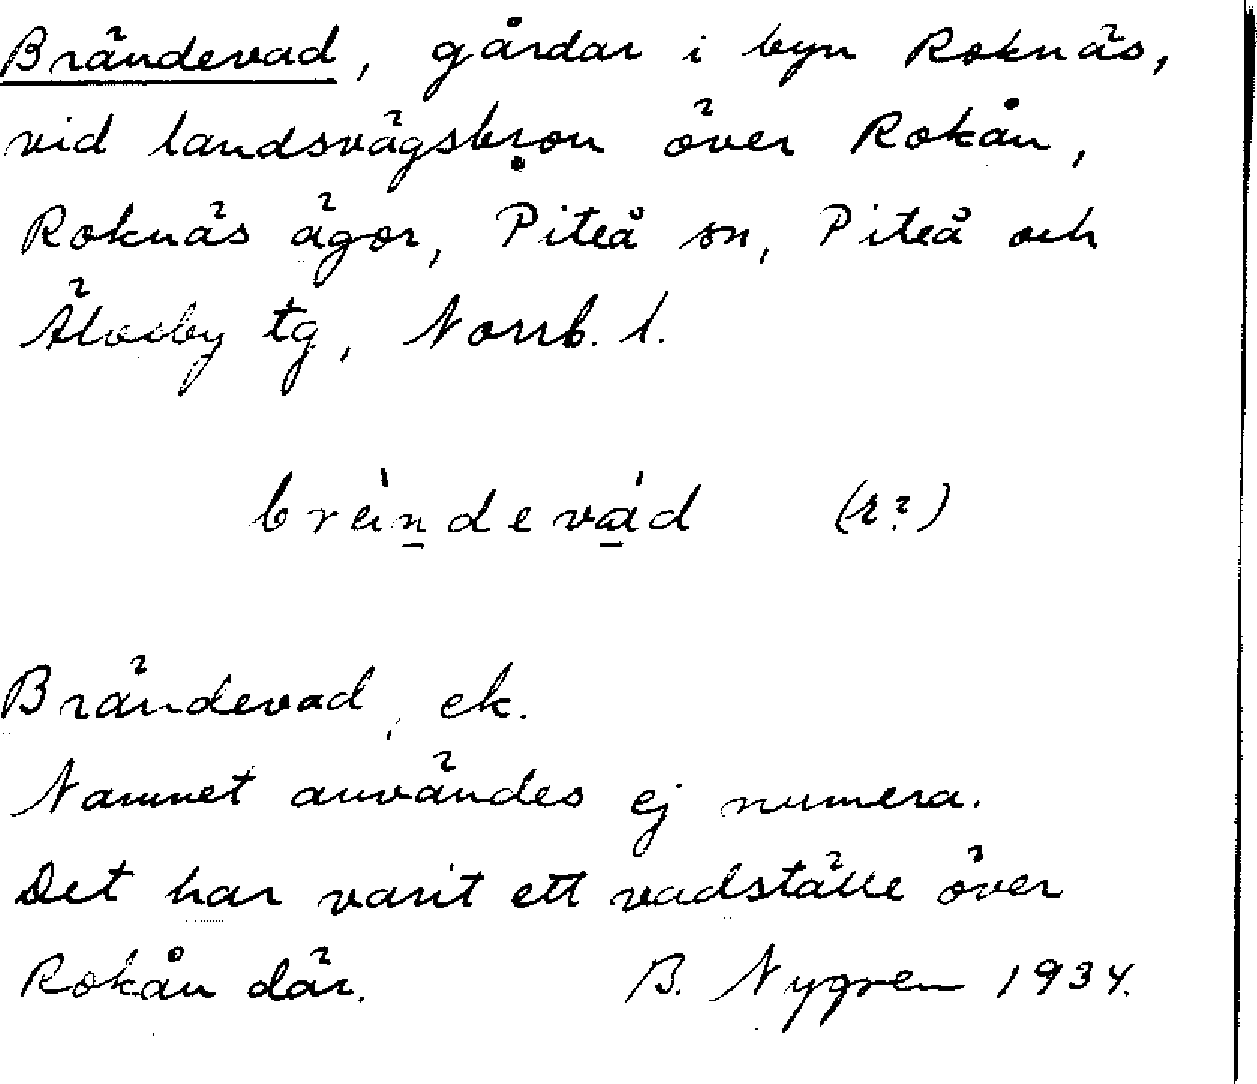 Brändevad, gårdar i byn Roknäs,
vid landsvägsbron över Rokån,
Roknäs ägor, Piteå sn, Piteå och
Älvsby tg, Norrb. l.
brändevad (r?)
Brändevad, ek.
Namnet användes ej numera.
Det har varit ett vadställe över
Rokån där. B. Nygren 1934.